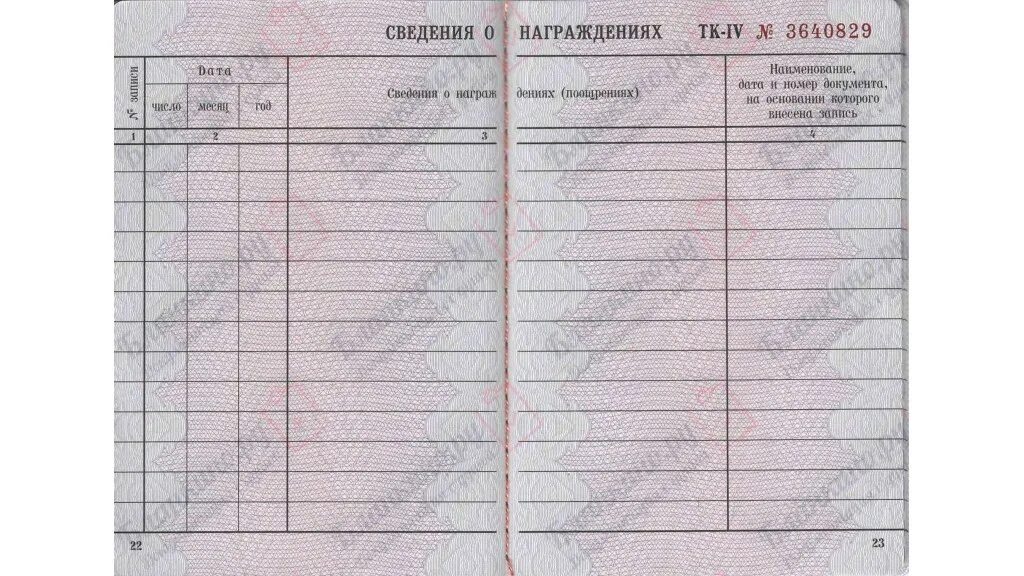 СВЕДЕНИЯ О НАГРАЖДЕНИЯХ ТК-IV № 3640829
№ записи
Дата
число месяц год
Сведения о награждениях (поощрениях)
Наименование,
дата и номер документа,
на основании которого
внесена запись
1 2 3 4
22
23